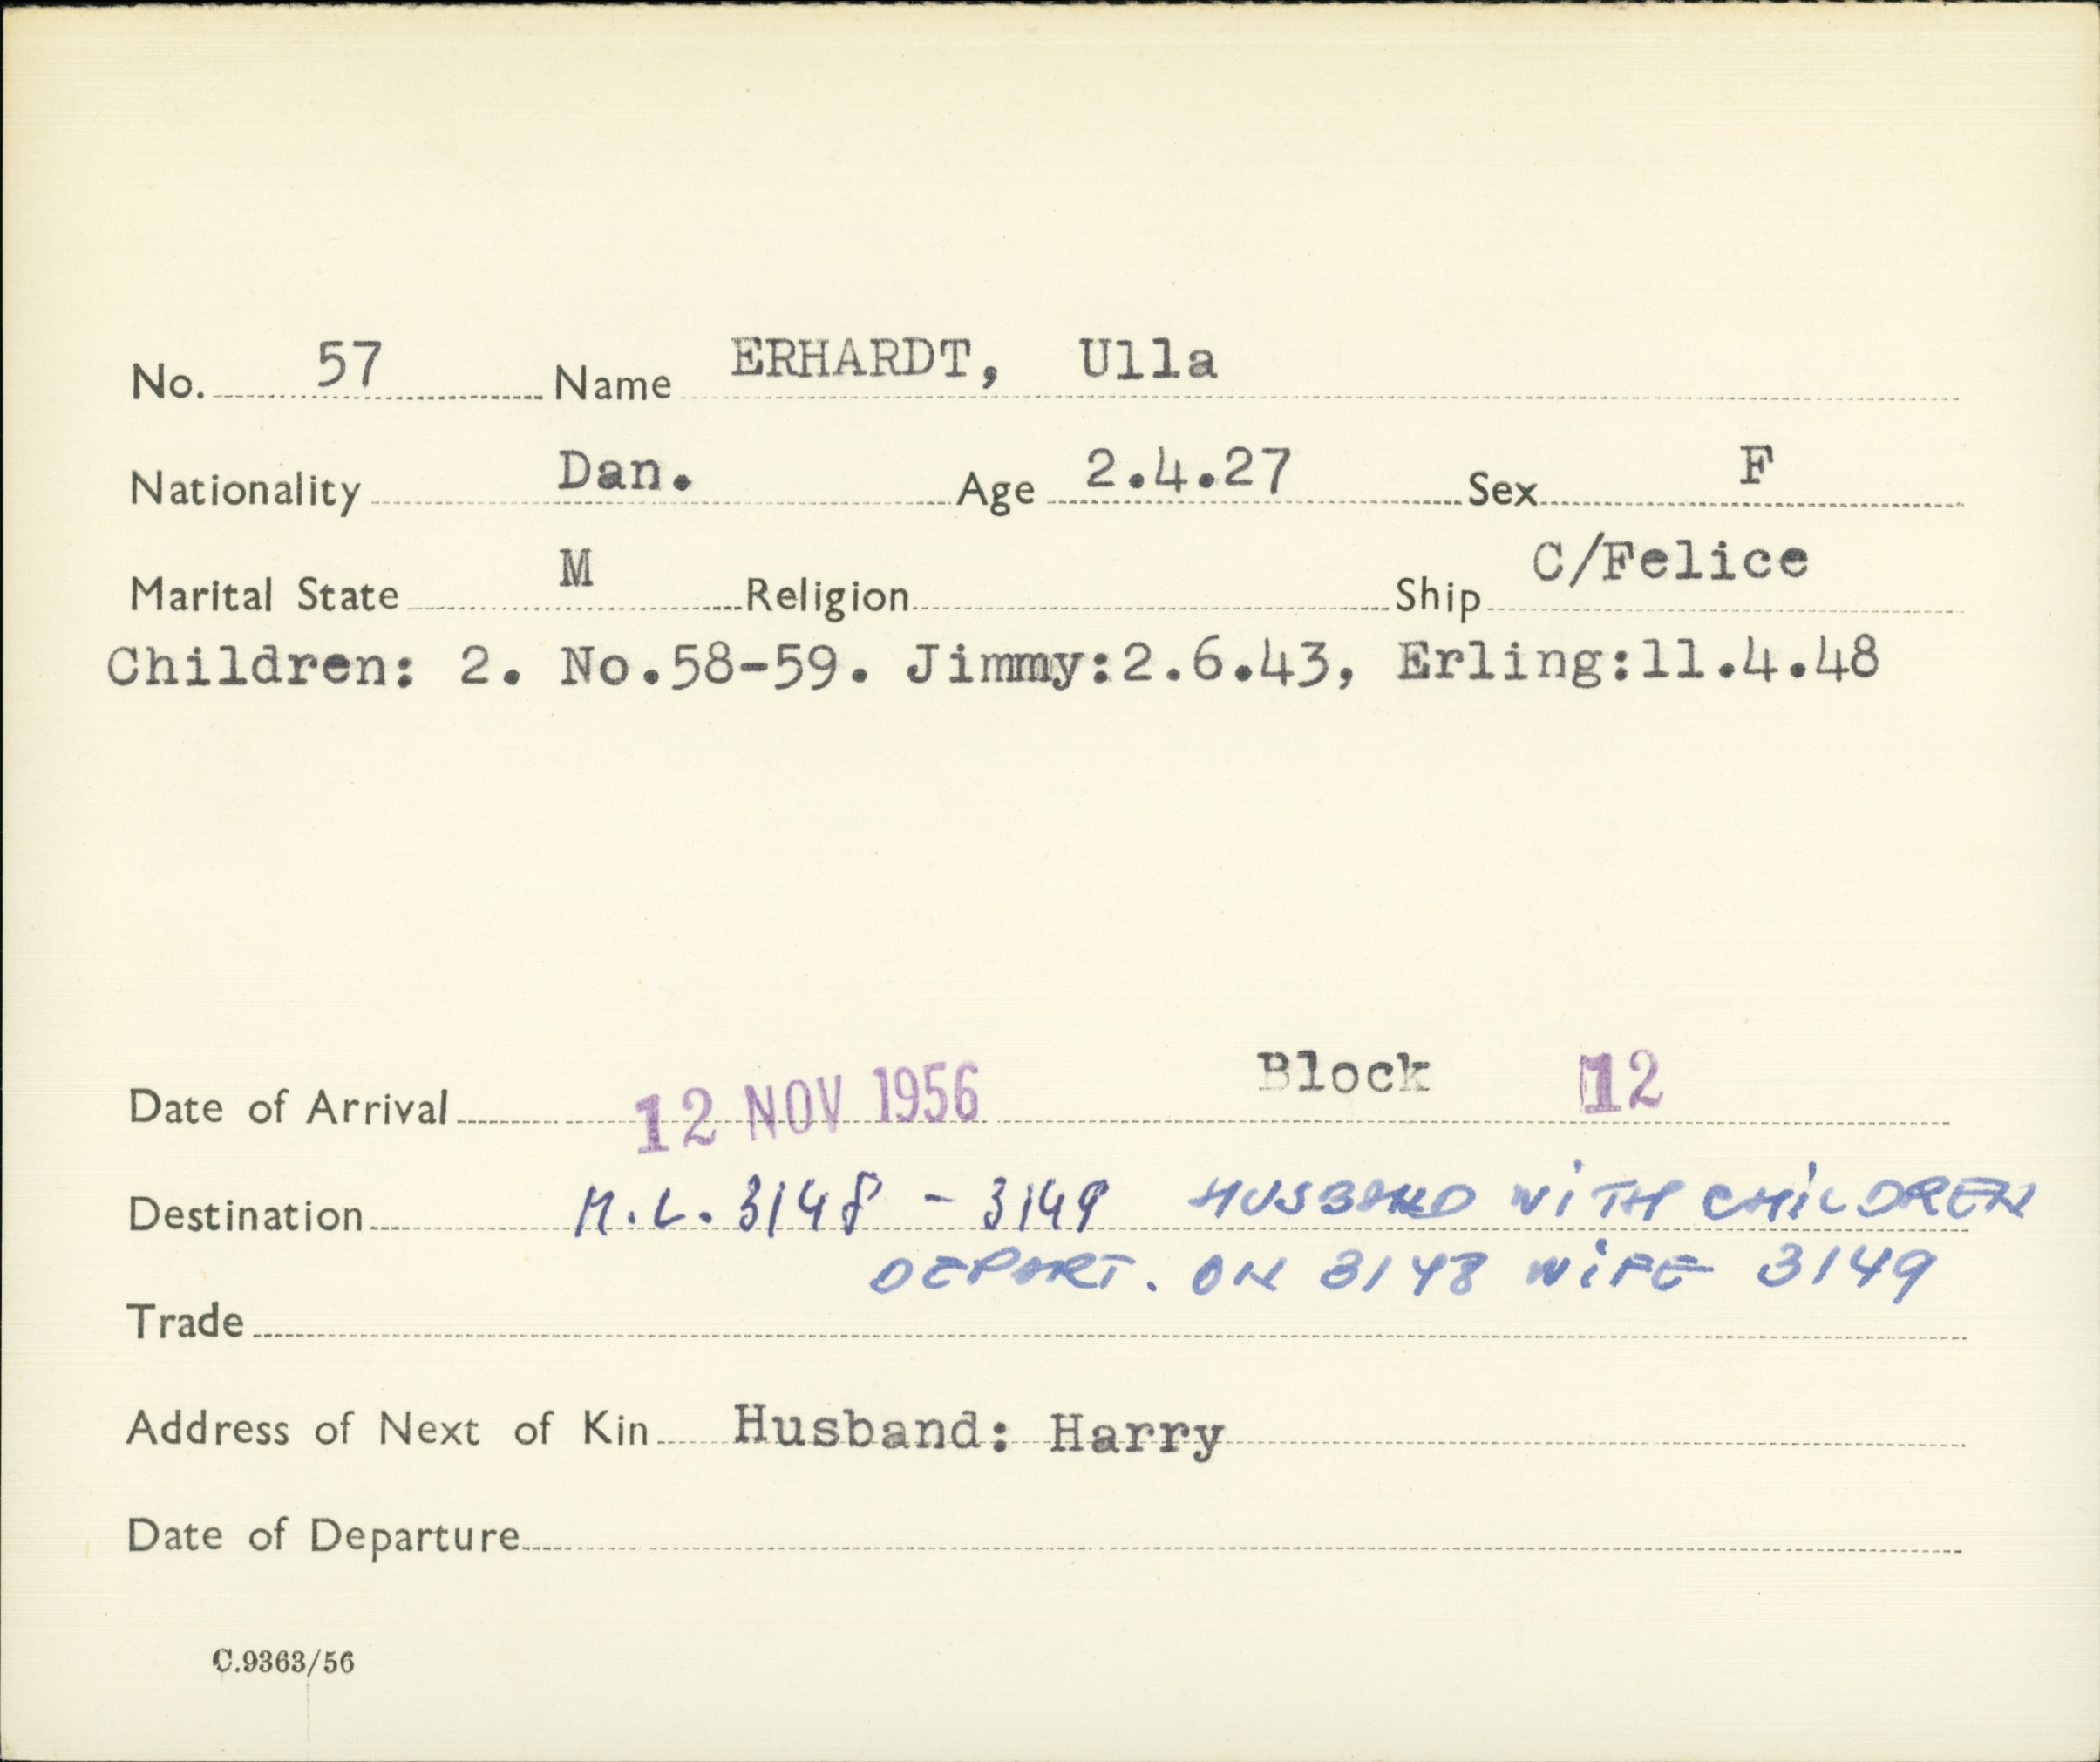 No. 57 Name ERHARDT, Ulla
Nationality Dan. Age 2.4.27 Sex F
Marital State M Religion Ship C/Felice
Children: 2. No.58-59. Jimmy:2.6.43, Erling:11.4.48
Date of Arrival 12 NOV 1956 Block 12
Destination M.L. 3148 - 3149 HUSBAND WiTH CHiLDREN
DEPART. ON 3148 WiFE 3149
Trade
Address of Next of Kin Husband: Harry
Date of Departure
C.9363/56